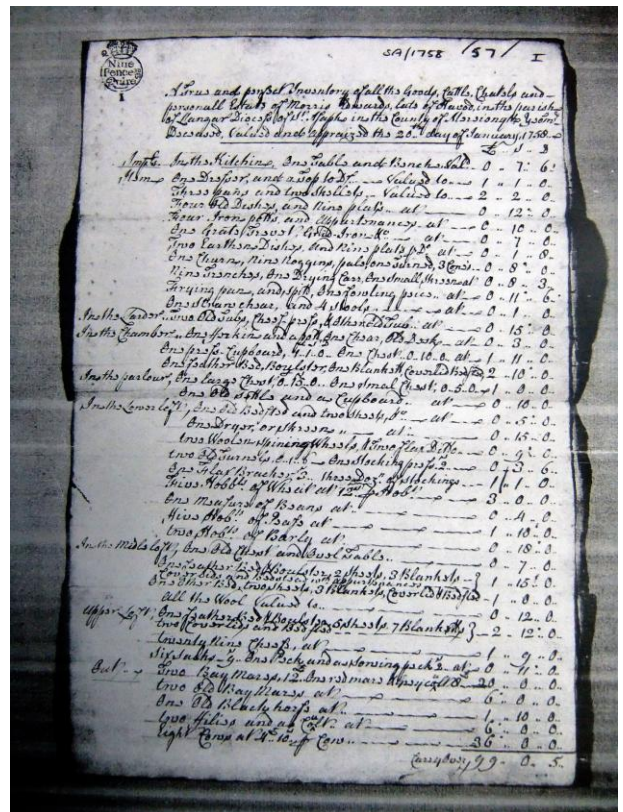 SA/1758 / 57 / I
Nine
Pence
I
A True and perfect Inventory of all the Goods, Cattle, Chatels and
personall Estate of Morris Edwards, late of in the parish
of Llangar Diocess of St. Asaph in the County of Merioneth
Deceased, Valued and Appraized the 20th day of January, 1758
£ S D
In the Kitchin, One Table and Bench, Val: 0 7 6
Item One Dresser, and a Top to Do. Valued to 1 1 0
Three pans and two Skellets Valued to 2 2 0
Four Old Dishes, and Nine plats at 0 12 0
Four Iron potts and Appurtenances at 0 10 0
One Grate, Trevet, Grid Iron &c at 0 7 0
Two Earthen Dishes, and Nine plats at 0 1 8
One Churn, Nine Noggins, one 0 8 0
Nine Trenches, One Drying One Small at 0 8 3
Frying pan, and spitt, One Fowling piece at 0 11 6
One Chear, and 4 Stools 0 1 0
In the Larder, Two Old Tubs, Chees press, & at 0 15 0
In the Chamber, One and a pott, One Chear, Old Desk at 0 3 0
One press Cupboard, One Chest 0 10 0 at 1 11 0
One Feather Bed, Boulster, One Blankett, 2 10 0
In the parlour, One large Chest, 0 15 0 One smal Chest, 0 5 0 1 0 0
One Old settle and a Cupboard at 0 10 0
In the Lower loft, One Old Bedsted and two sheets, 0 5 0
One at 0 15 0
two Woolen spining Wheels, & Two Flax Ditto 0 9
two Old 0 1 6 One Stocking press 2 0 3 6
One Flax three Doz: of stockings 1 1 0
Five Hobbts. of Wheat at 12 Hobt 3 0 0
One Measure of Beans at 0 4 0
Five Hobts. of at 1 10 0
two Hobts. of Barly at 0 18 0
In the Midle loft, One Old Chest and Ovel Table 0 7 0
One Feather Bed & Boulster, 2 sheets, 3 Blankets
Coverled and Bedsted with appurtenances 1 15 0
One Other Bed, two sheets, 3 Blankets, Coverled & Bedsted 1 0 0
All the Wool Valued to 0 12 0
Upper loft, One Feather Bed & Boulster, 5 sheets, 7 Blanketts
two Coverleds and Bedsted 2 12 0
twenty Nine Chees, at 1 9 0
Six Sacks 9 One Pack, and a at 0 11 0
Out Two Bay Mares, 12 One red mare 8 20 0 0
two Old Bay Mares at 6 0 0
One Old Black horse at 1 10 0
two Filies and a Colt at 6 0 0
Eight Cows at Cow 36 0 0
Carry Over 99 0 5